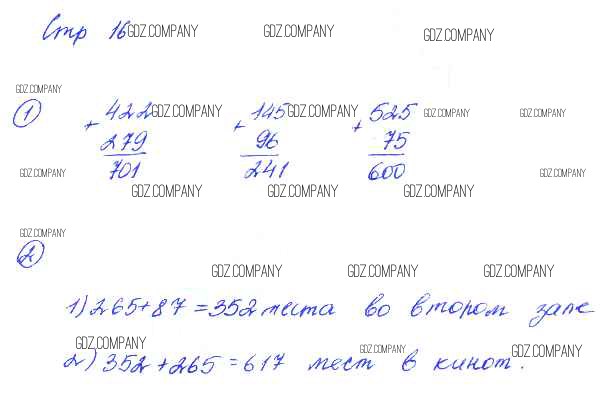 Стр 16 GDZ.COMPANY GDZ.COMPANY GDZ.COMPANY
GDZ.COMPANY
1 + 422 GDZ.COMPANY + 145 GDZ.COMPANY + 525 GDZ.COMPANY GDZ.COMPANY
279 96 75
701 241 600
GDZ.COMPANY GDZ.COMPANY
GDZ.COMPANY GDZ.COMPANY GDZ.COMPANY
GDZ.COMPANY
2
GDZ.COMPANY GDZ.COMPANY GDZ.COMPANY
1) 265+87=352 места во втором зале
GDZ.COMPANY GDZ.COMPANY GDZ.COMPANY
2) 352+265=617 мест в кинот.